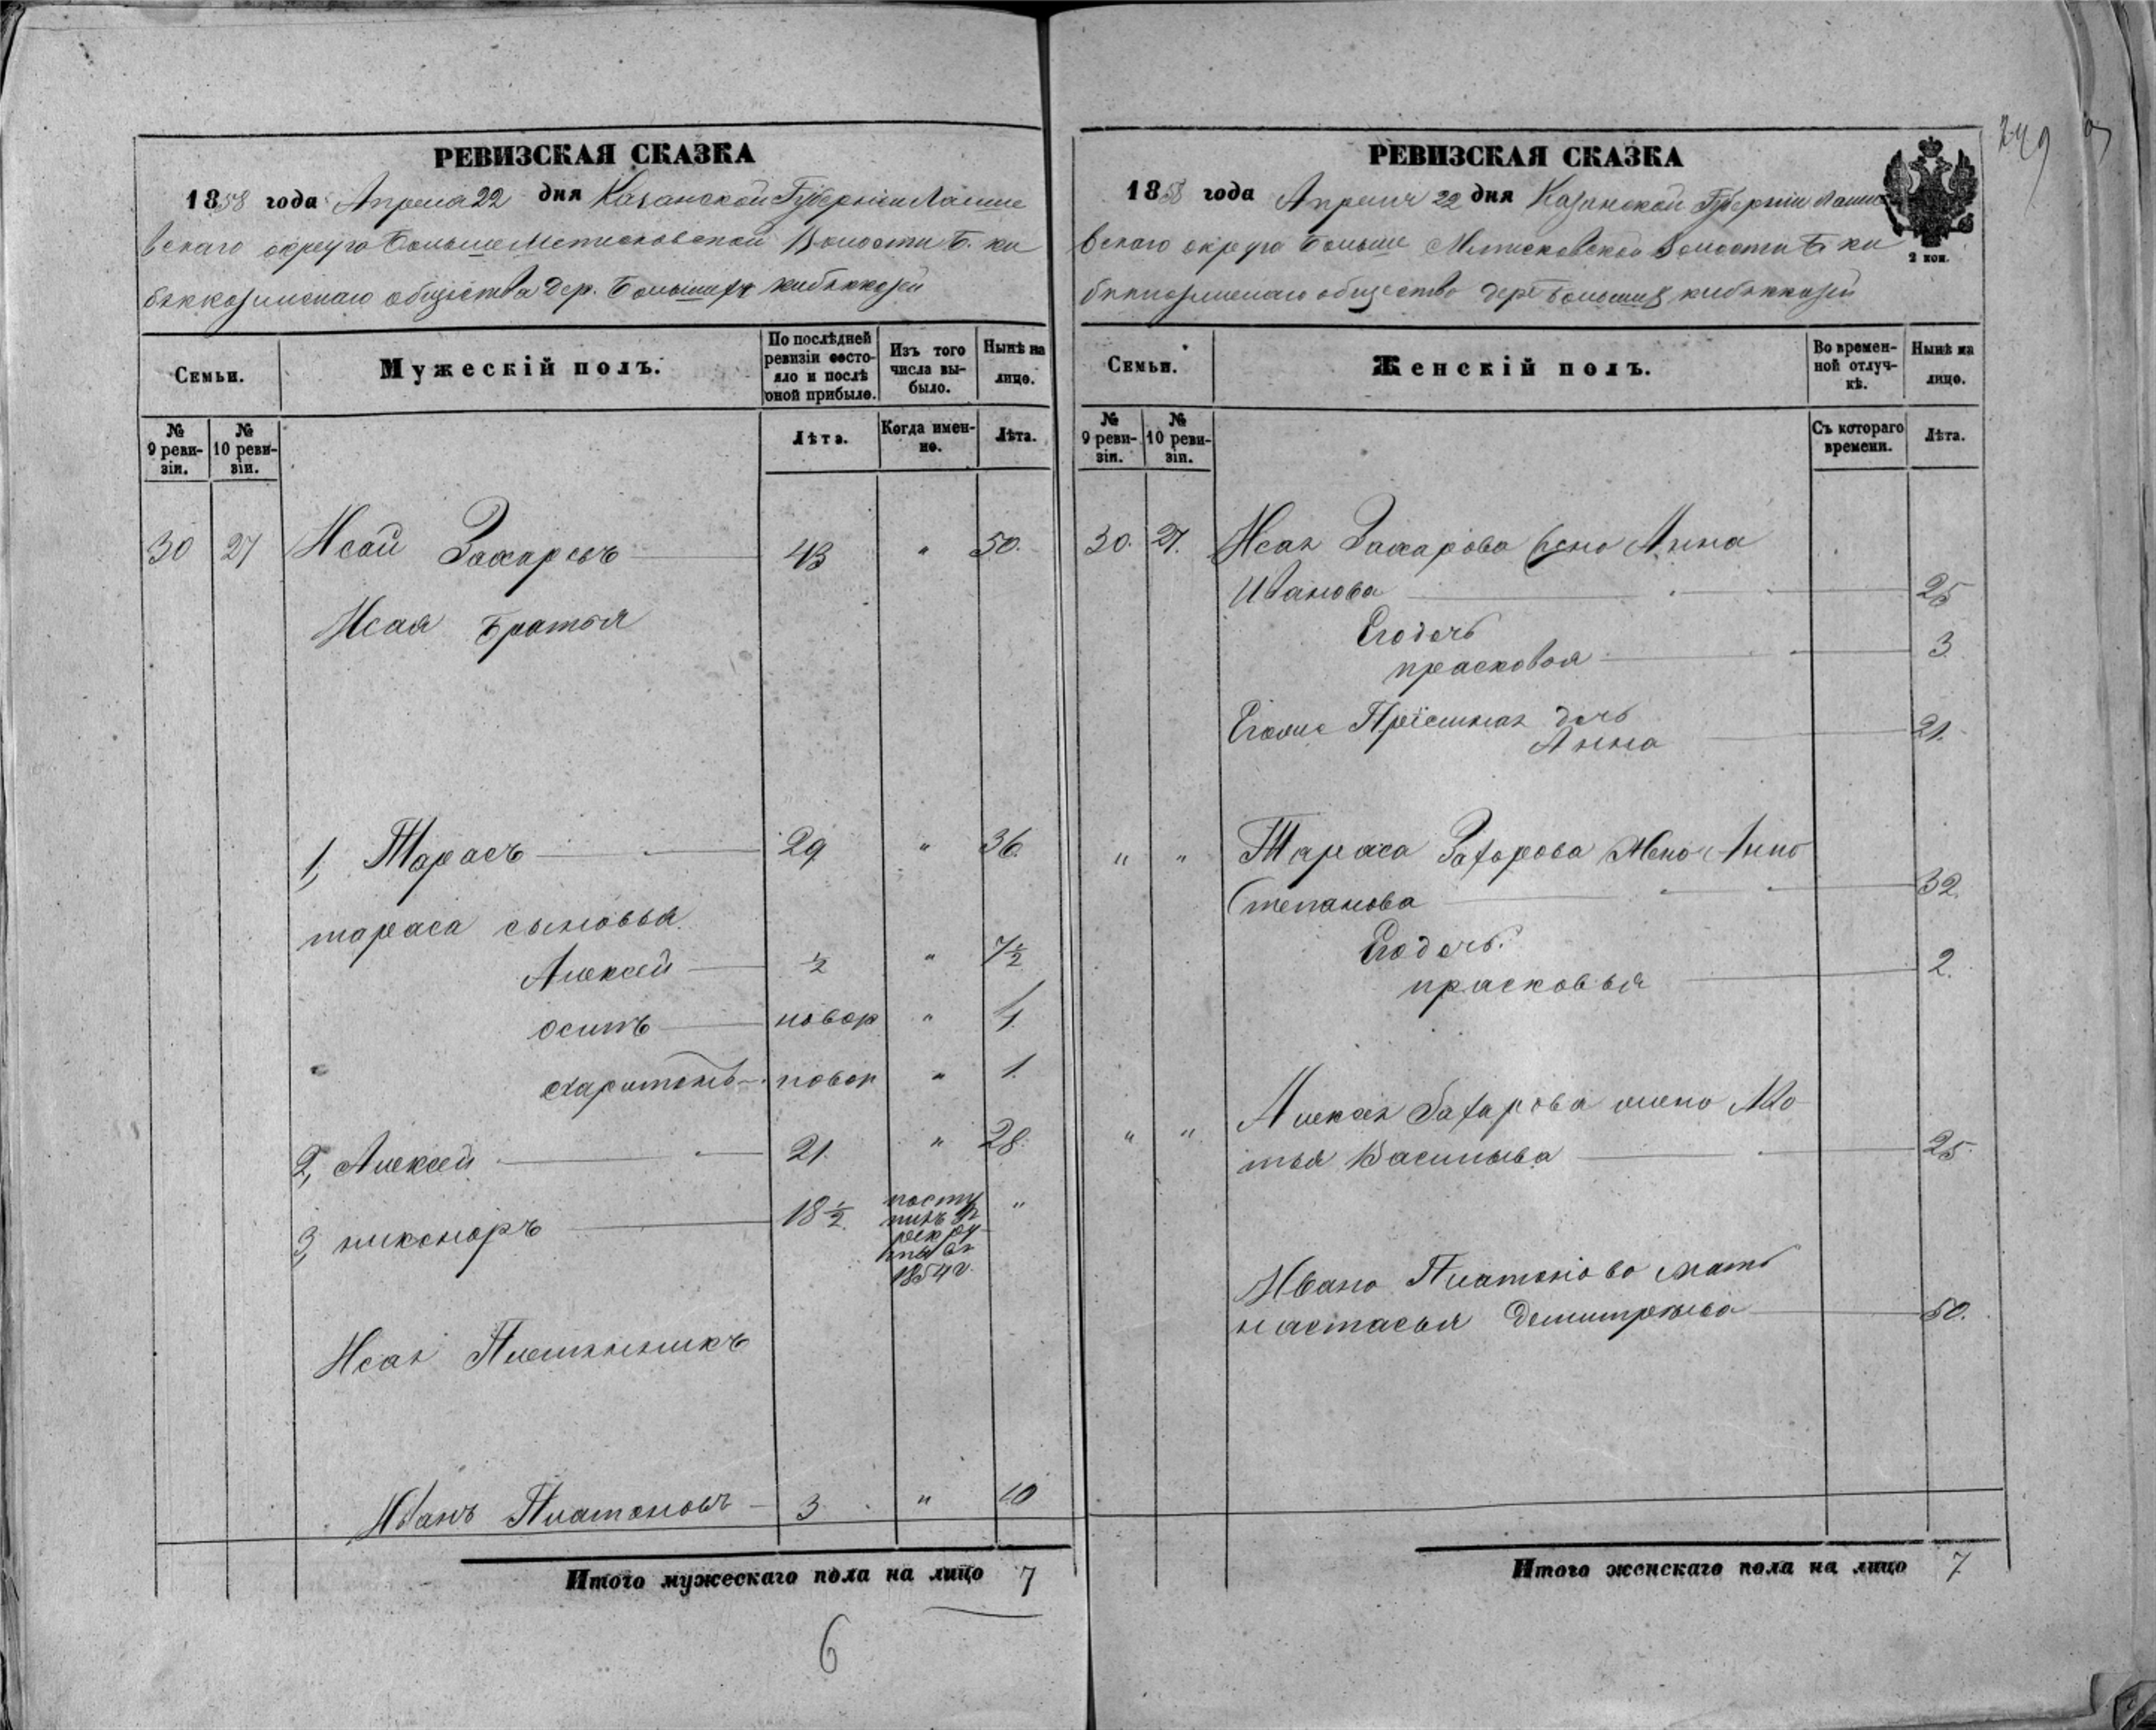 РЕВИЗСКАЯ СКАЗКА
1858 года Апреля 22 дня Казанской Губернiи Лаише
вскаго округа Больше Метисковской Волости Б. ки
бяккозинскаго общества Дер. Большихъ кибяккозей
Семьи.
Мужескій полъ.
По послѣдней ревизіи состояло и послѣ оной прибыло.
Изъ того числа выбыло.
Нынѣ на лицо.
№ 9 ревизіи.
№ 10 ревизіи.
Лѣта.
Когда именно.
Лѣта.
30 27 Исай Захаровъ 43 " 50.
Исая братья
1, Тарасъ 29 " 36.
тараса сыновья
Алексей ½ " 7½
осипъ новор " 4.
харитонъ новор " 1.
2, Алексей 21. " 28.
3, никоноръ 18½ посту
пилъ въ
рекру
ты въ
1854 г. "
Исая Племянникъ
Иванъ Платоновъ 3 " 10
Итого мужескаго пола на лицо 7
6
249
РЕВИЗСКАЯ СКАЗКА
1858 года Апреля 22 дня Казанской Губернiи Лаише
вскаго округа Больше Метисковской Волости Б ки
бяккозинскаго общество дер Большихъ кибяккозей
2 коп.
Семьи.
Женскій полъ.
Во временной отлучкѣ.
Нынѣ на лицо.
№ 9 ревизіи.
№ 10 ревизіи.
Съ котораго времени.
Лѣта.
30. 27. Исая Захарова жена Анна
Иванова 25
Его дочь
прасковья 3
Пріемная дочь
Анна 21.
" " Тараса Захарова Жена Анна
Степанова 32.
Его дочь.
прасковья 2.
" " Алексея Захарова жена Ма
тья Васильева 25.
Ивана Платонова мать
настасья Демитрева 50.
Итого женскаго пола на лицо 7